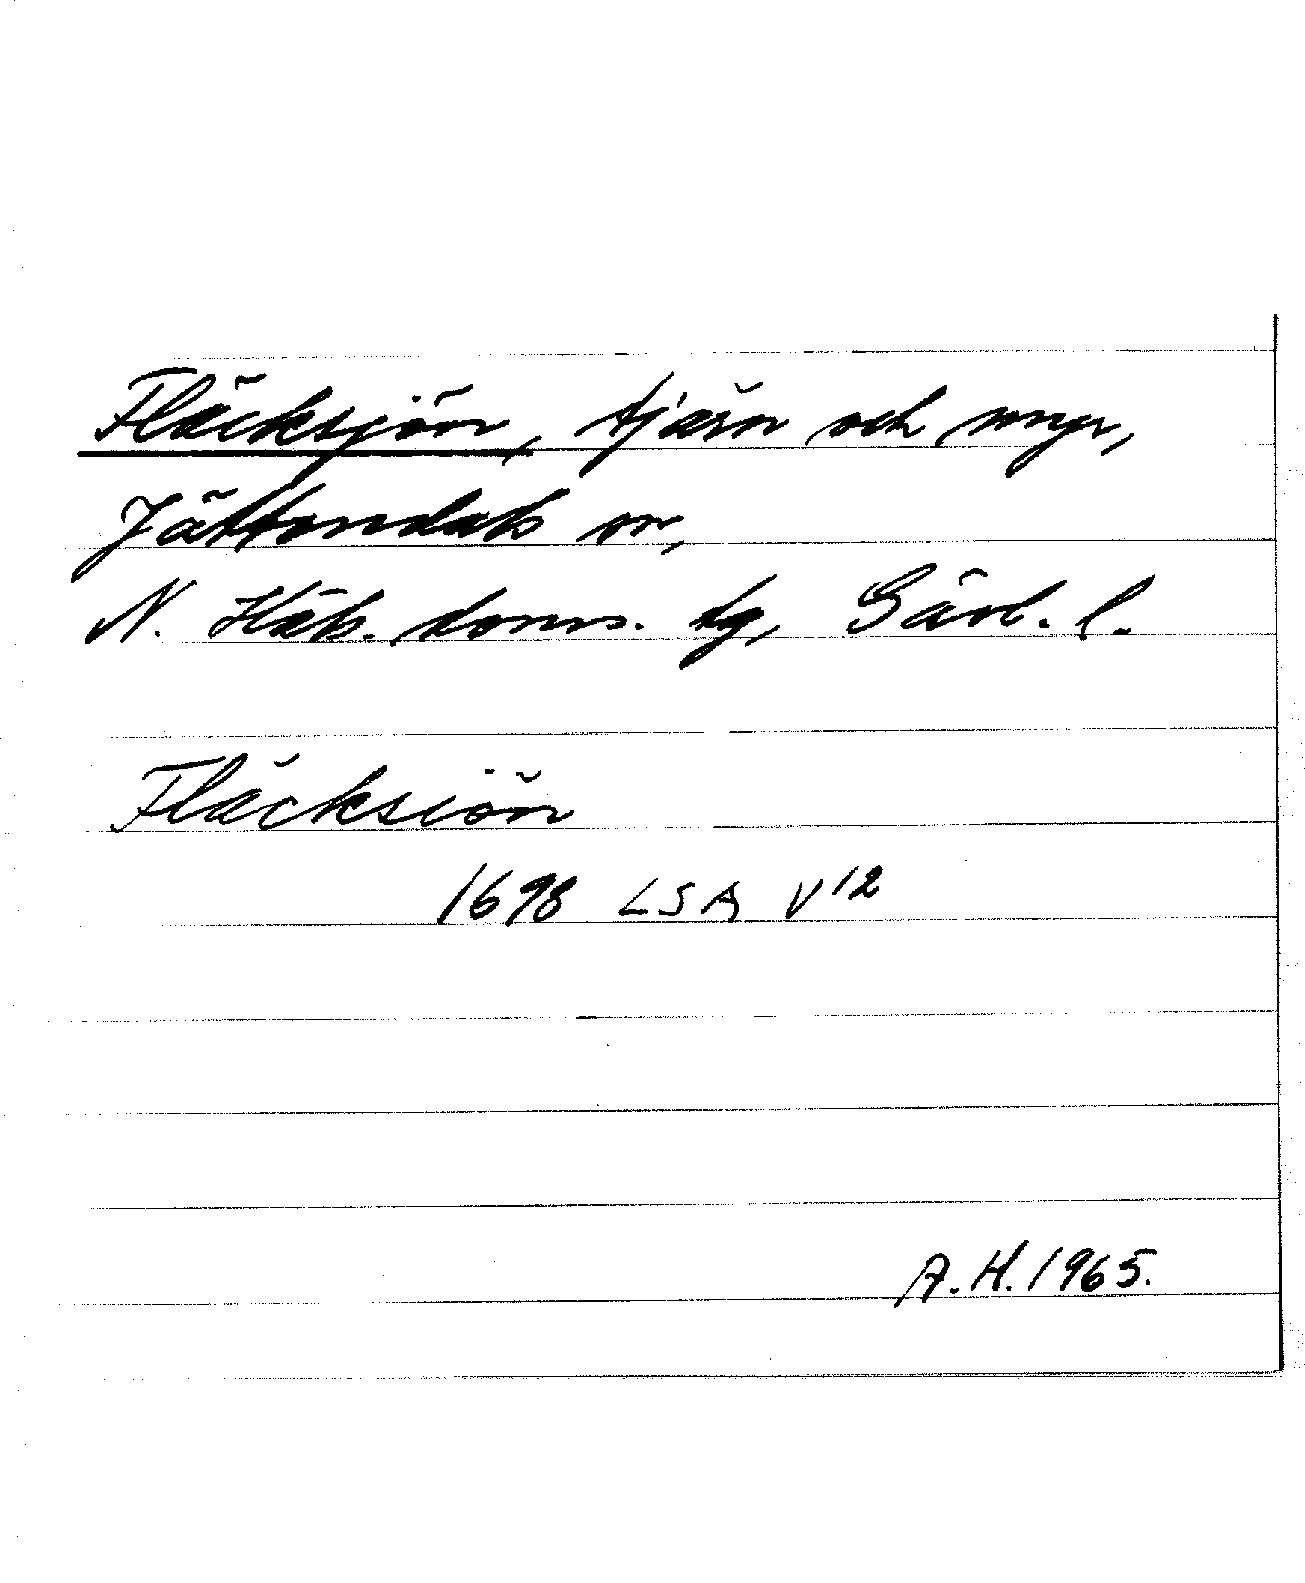 Fläcksjön, tjärn och myr,
Jättendals sn,
N. Häls. doms. tg, Gävl. l.
Fläcksiön
1698 LSA V12
A.H. 1965.